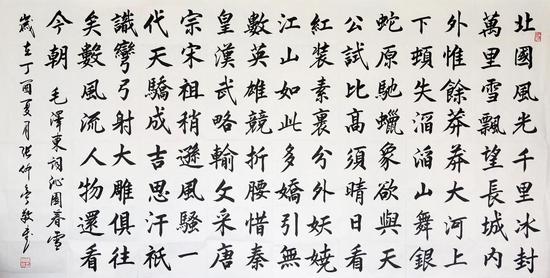 北國風光千里冰封
萬里雪飄望長城内
外惟餘莽莽大河上
下頓失滔滔山舞銀
蛇原馳蠟象欲與天
公試比高須晴日看
紅裝素裹分外妖嬈
江山如此多嬌引無
數英雄競折腰惜秦
皇漢武略輸文采唐
宗宋祖稍遜風騷一
代天驕成吉思汗祇
識彎弓射大雕俱往
矣數風流人物還看
今朝 毛澤東詞沁園春雪
歲在丁酉夏月張仲敬書